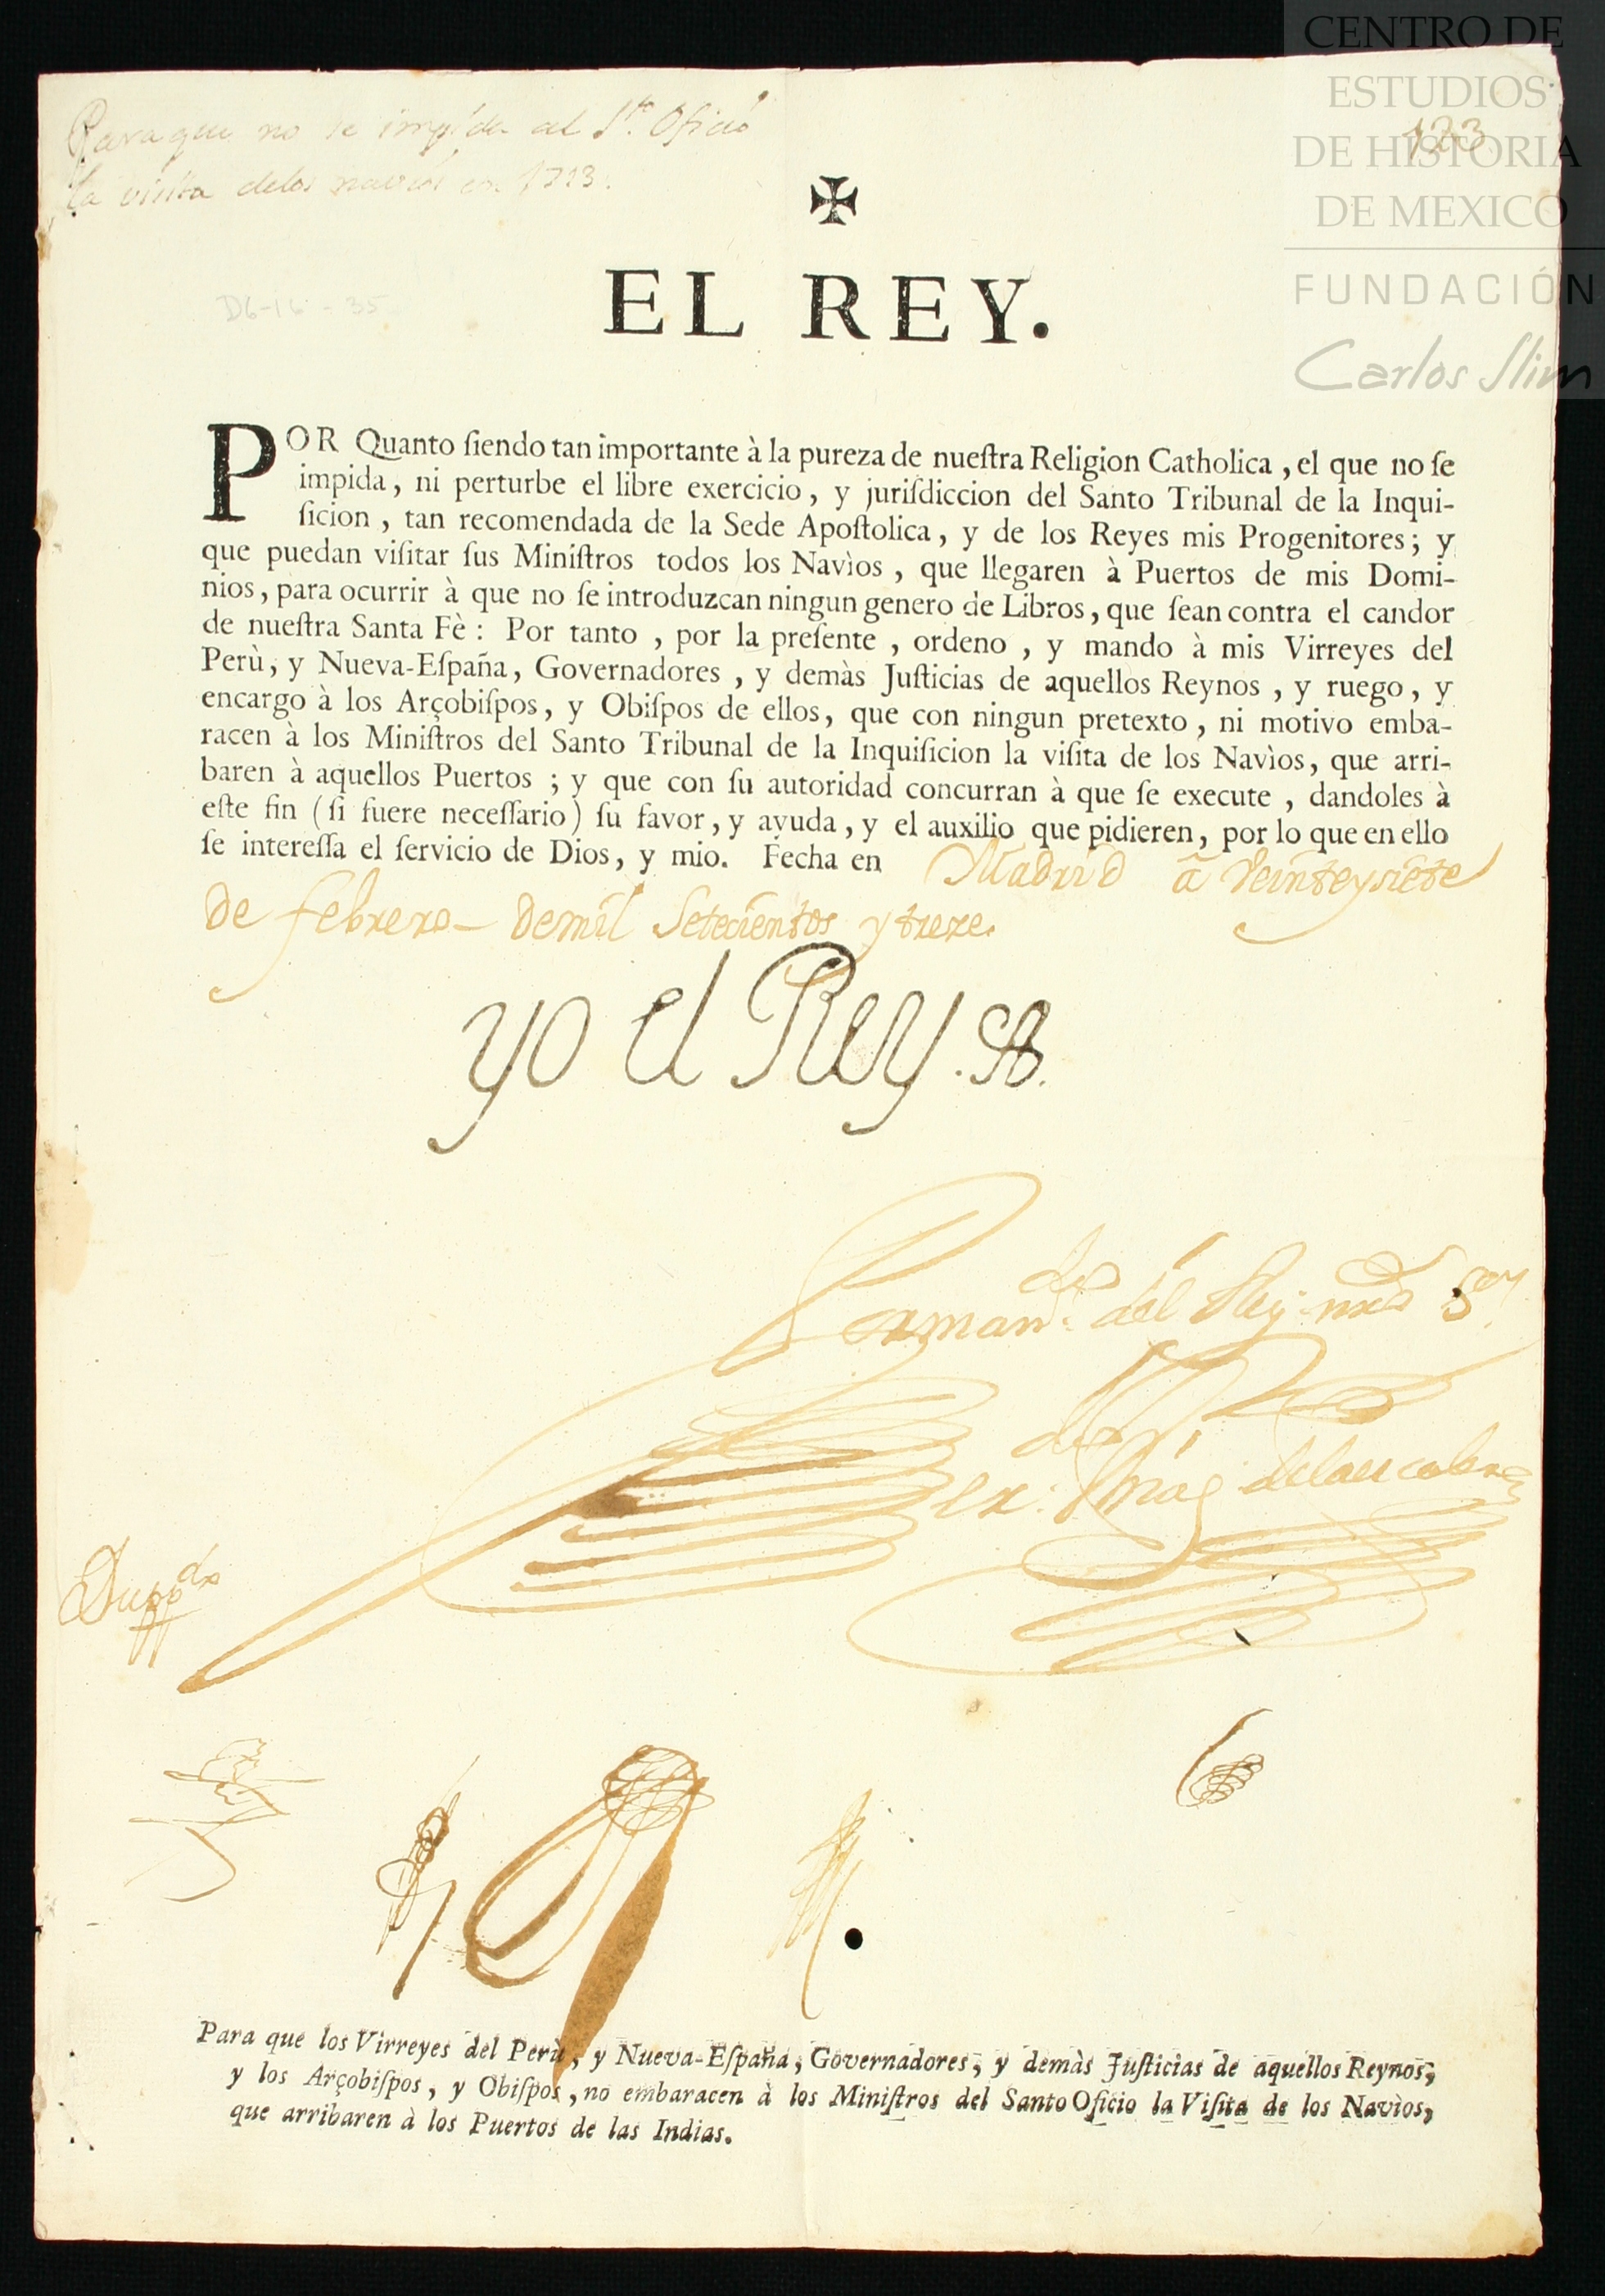 CENTRO DE
ESTUDIOS
DE HISTORIA
DE MEXICO
FUNDACIÓN
Carlos Slim
123
Para que no se impida al Sto. Oficio
la visita delos navios en 1713.
D6-16-35
EL REY.
POR Quanto ſiendo tan importante à la pureza de nueſtra Religion Catholica, el que no ſe
impida, ni perturbe el libre exercicio, y juriſdiccion del Santo Tribunal de la Inqui-
ſicion, tan recomendada de la Sede Apoſtolica, y de los Reyes mis Progenitores; y
que puedan viſitar ſus Miniſtros todos los Navìos, que llegaren à Puertos de mis Domi-
nios, para ocurrir à que no ſe introduzcan ningun genero de Libros, que ſean contra el candor
de nueſtra Santa Fè: Por tanto, por la preſente, ordeno, y mando à mis Virreyes del
Perù, y Nueva-Eſpaña, Governadores, y demàs Juſticias de aquellos Reynos, y ruego, y
encargo à los Arçobiſpos, y Obiſpos de ellos, que con ningun pretexto, ni motivo emba-
racen à los Miniſtros del Santo Tribunal de la Inquiſicion la viſita de los Navìos, que arri-
baren à aquellos Puertos; y que con ſu autoridad concurran à que ſe execute, dandoles à
eſte fin (ſi fuere neceſſario) ſu favor, y ayuda, y el auxilio que pidieren, por lo que en ello
ſe intereſſa el ſervicio de Dios, y mio. Fecha en Madrid à Veinteysiete
de febrero- demil Setecientos y treze.
yo el Rey.
Por mando. del Rey nro Sr.
Duppdo
Para que los Virreyes del Perù, y Nueva-Eſpaña, Governadores, y demàs Juſticias de aquellos Reynos,
y los Arçobiſpos, y Obiſpos, no embaracen à los Miniſtros del Santo Oficio la Viſita de los Navìos,
que arribaren à los Puertos de las Indias.